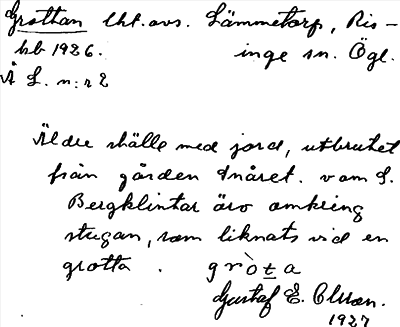 Grottan lht. avs. Lämmetorp, Ris-
hb 1926. inge sn. Ögl.
Å L. n:r 2
Äldre ställe med jord, utbrutet
från gården Snåret. vom L.
Bergklintar äro omkring
stugan, som liknats vid en
grotta. gròta
Gustaf E. Olsson.
1927